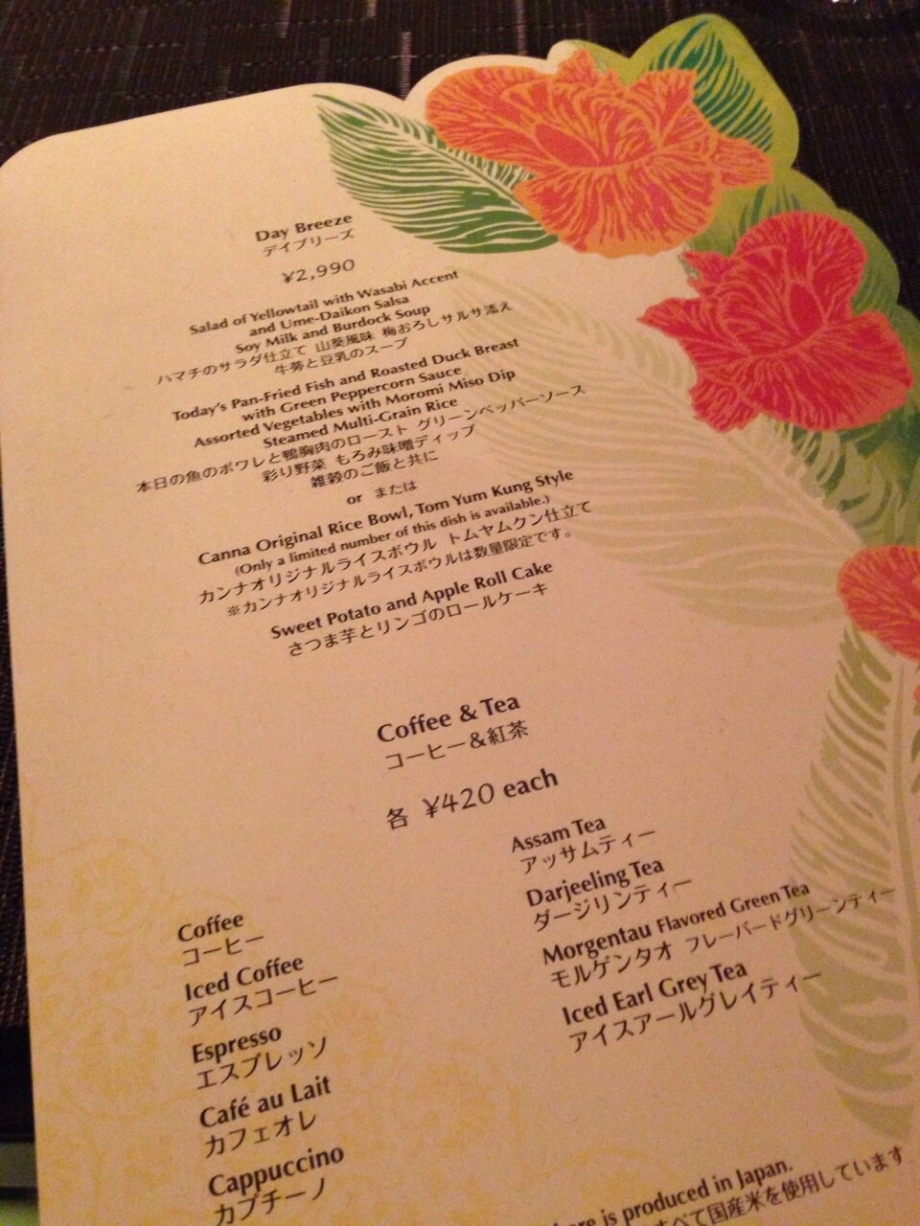 Day Breeze
デイブリーズ
¥2,990
Salad of Yellowtail with Wasabi Accent
and Ume-Daikon Salsa
Soy Milk and Burdock Soup
ハマチのサラダ仕立て 山葵風味 梅おろしサルサ添え
牛蒡と豆乳のスープ
Today's Pan-Fried Fish and Roasted Duck Breast
with Green Peppercorn Sauce
Assorted Vegetables with Moromi Miso Dip
Steamed Multi-Grain Rice
本日の魚のポワレと鴨胸肉のロースト グリーンペッパーソース
彩り野菜 もろみ味噌ディップ
雑穀のご飯と共に
or または
Canna Original Rice Bowl, Tom Yum Kung Style
(Only a limited number of this dish is available.)
カンナオリジナルライスボウル トムヤムクン仕立て
※カンナオリジナルライスボウルは数量限定です。
Sweet Potato and Apple Roll Cake
さつま芋とリンゴのロールケーキ
Coffee & Tea
コーヒー&紅茶
各 ¥420 each
Coffee
コーヒー
Iced Coffee
アイスコーヒー
Espresso
エスプレッソ
Café au Lait
カフェオレ
Cappuccino
カプチーノ
Assam Tea
アッサムティー
Darjeeling Tea
ダージリンティー
Morgentau Flavored Green Tea
モルゲンタオ フレーバードグリーンティー
Iced Earl Grey Tea
アイスアールグレイティー
is produced in Japan.
すべて国産米を使用しています